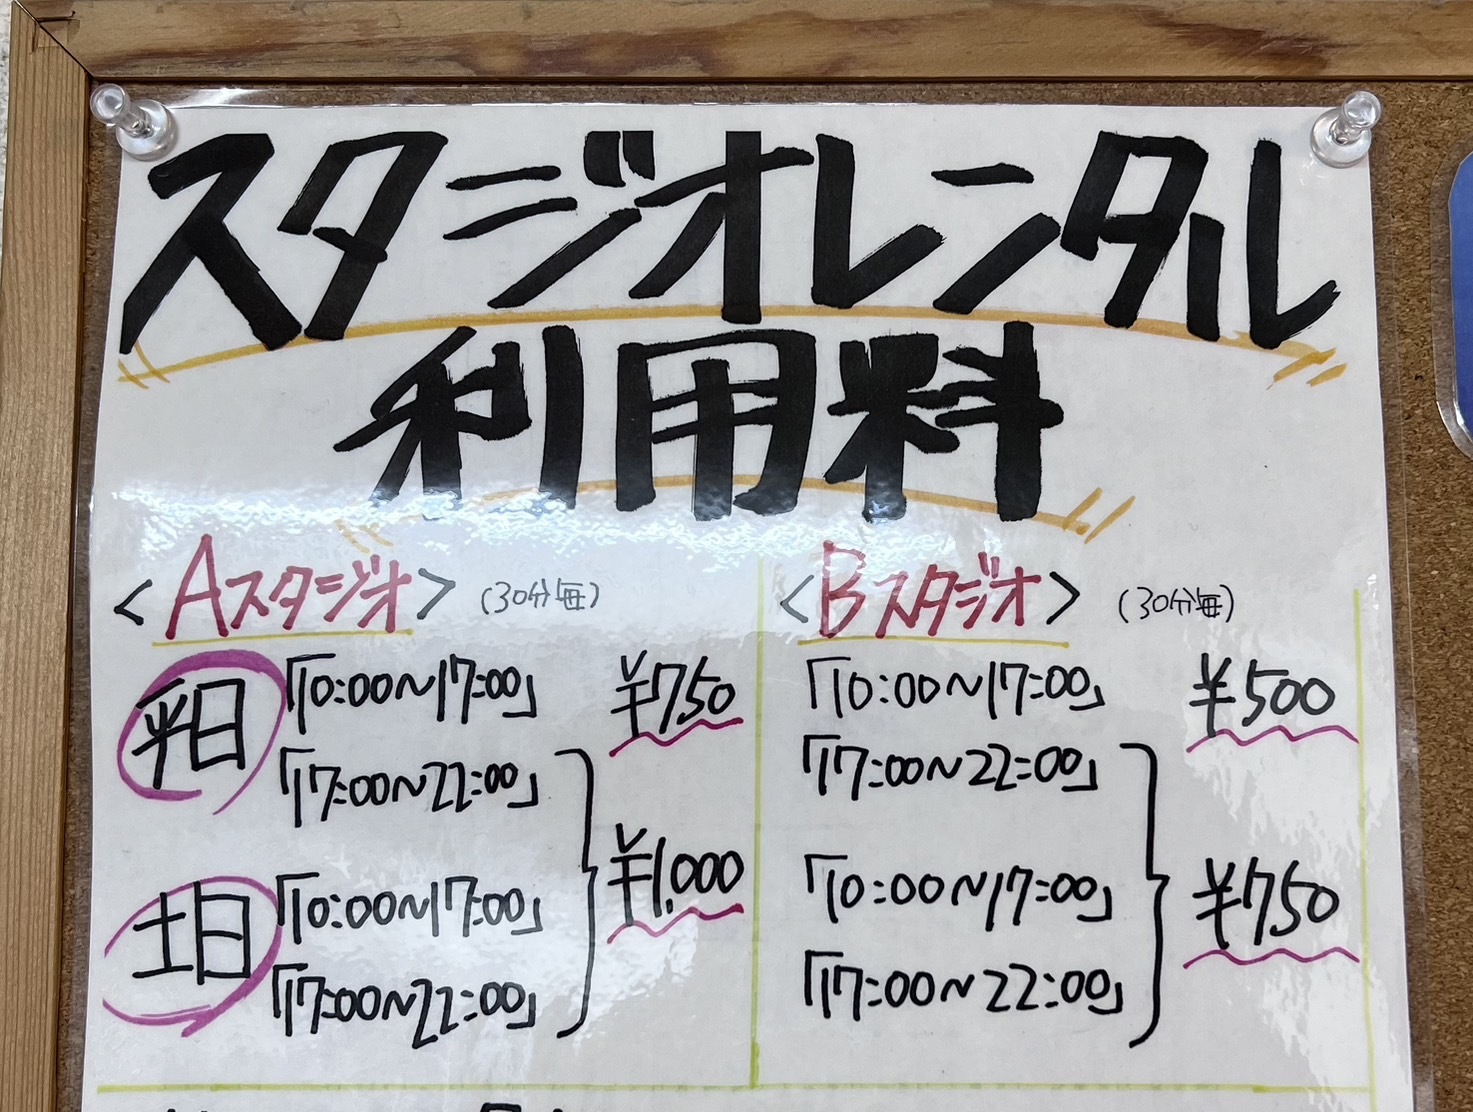 スタジオレンタル
利用料
<Aスタジオ> (30分毎)
平日 「10:00~17:00」 ¥750
「17:00~22:00」
¥1,000
土日 「10:00~17:00」
「17:00~22:00」
<Bスタジオ> (30分毎)
「10:00~17:00」 ¥500
「17:00~22:00」
「10:00~17:00」 ¥750
「17:00~22:00」